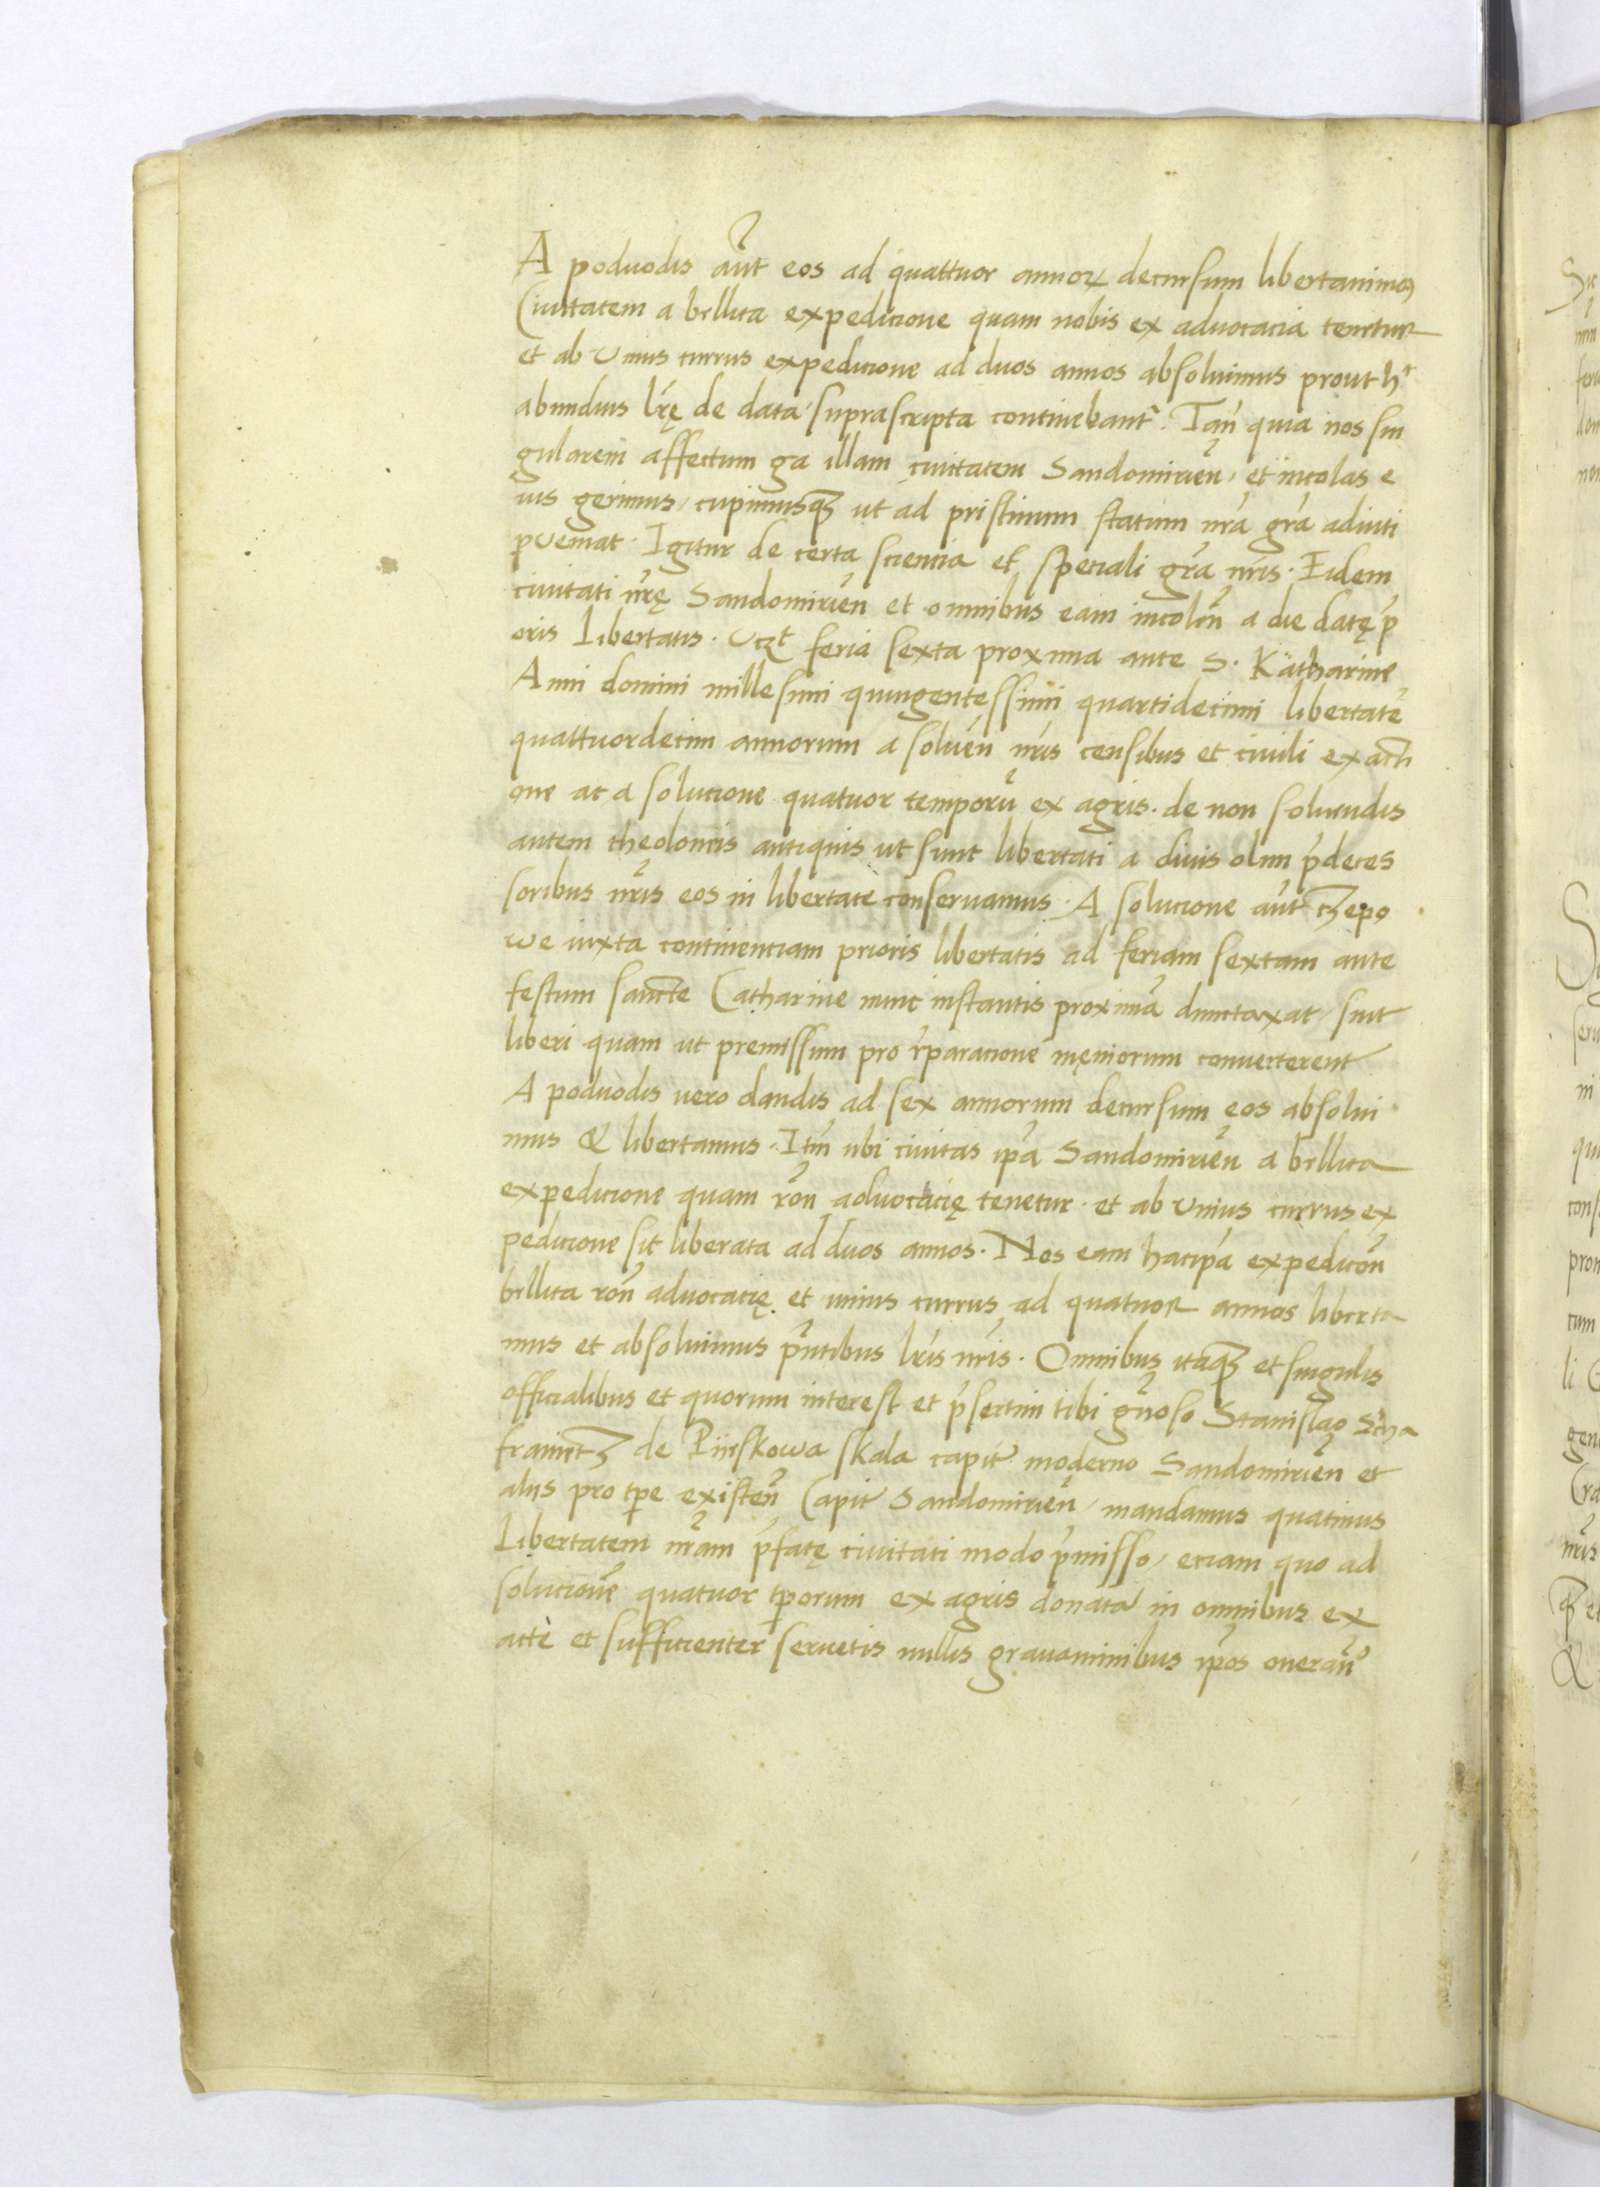 A poduodis aūt eos ad quattuor annoꝝ decursum libertauimꝰ
Ciuitatem a bellica expedicione quam nobis ex aduocacia tenetur
et ab vnius currus expedicione ad duos annos absoluimus prout hͦ
abundius lr̄ę de data suprascripta continebantʳ. Tan̄ quia nos sin
gularem affectum ga illam ciuitatem Sandomirien̄, et incolas e
ius gerimus, cupimusqꝫ ut ad pristinum statum nr̄a gr̄a adiuti
ꝑueniat. Igitur de certa sciencia et speciali gr̄a nr̄is. Eidem
ciuitati nr̄ę Sandomirien̄ et omnibus eam incolen̄ a die datę p̄
oris libertatis. Vcꝫt feria sexta proxima ante S. Katharine
Anni domini millesimi quingentessimi quartidecimi libertatē
quattuordecim annorum a soluen̄ nr̄is censibus et ciuili exacti
one ac a solucione quatuor temporū ex agris. de non soluendis
autem theoloneis antiquis ut sunt libertati a diuis olim p̄deces
soribus nr̄is eos in libertate conseruamus. A solucione aūt cꝫepo
we iuxta continenciam prioris libertatis ad feriam sextam ante
festum sancte Catharine nunc instantis proximā dumtaxat, sint
liberi quam ut premissum pro r̄paracione męniorum conuerterent
A poduodis uero dandis ad sex annorum decursum eos absolui
mus & libertamus. Itm̄ ubi ciuitas ip̄a Sandomirien̄ a bellica
expedicione quam ron̄ aduocacię tenetur. et ab vnius currus ex
pedicione sit liberata ad duos annos. Nos eam hac ip̄a expedicōn
bellica ron̄ aduocacię et unius currus ad quatuor annos liberta
mus et absoluimus p̄ntibus lr̄is nr̄is. Omnibus itaqꝫ et singulis
officialibus et quorum interest et p̄sertim tibi gn̄oso Stanislao Scha
franietꝫ de Pieskowa skala capit̄ moderno Sandomirien̄ et
aliis pro tꝑe existen̄ Capit̄ Sandomirien̄, mandamus quatinus
Libertatem nr̄am p̄fatę ciuitati modo p̄misso, eciam quo ad
solucionē quatuor tꝑorum ex agris donatā in omnibus ex
acte et sufficienter seruetis nullis grauaminibus ip̄os oneran̄